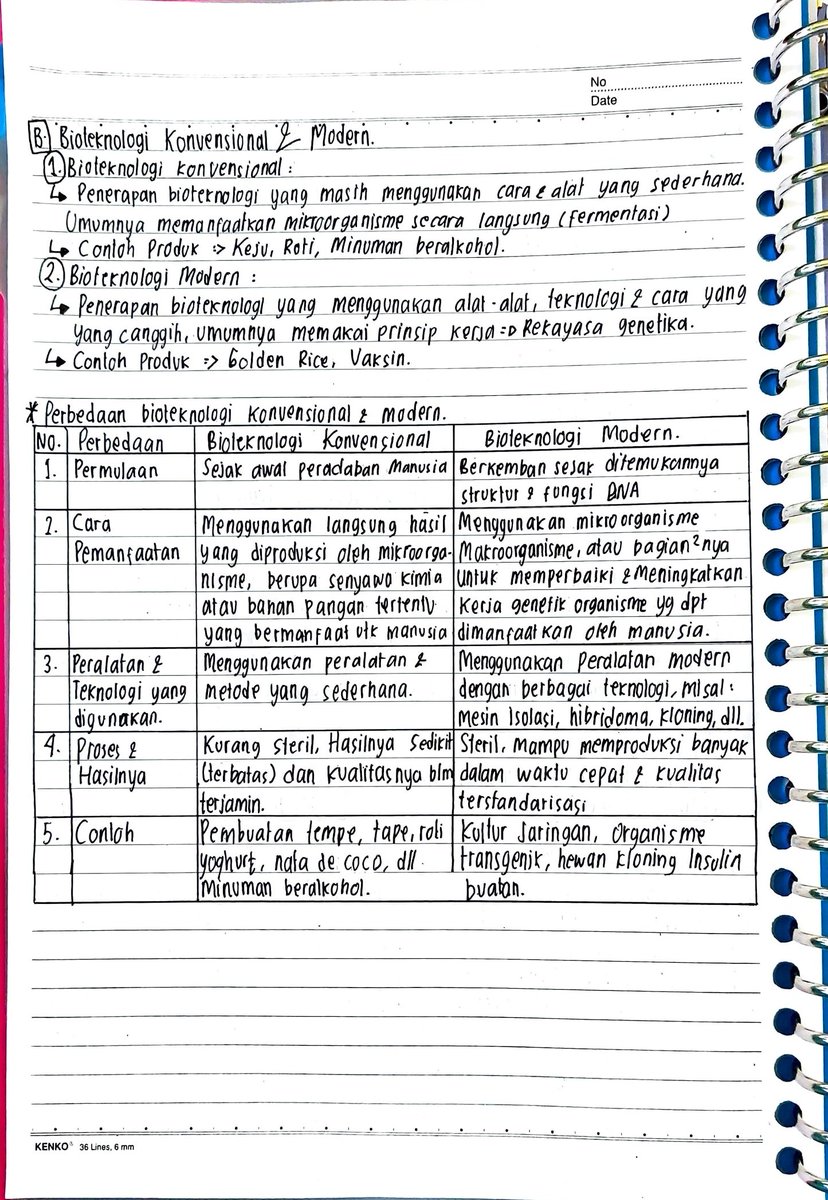 No
Date
B. Bioteknologi Konvensional & Modern.
1. Bioteknologi konvensional :
↳ Penerapan bioteknologi yang masih menggunakan cara & alat yang sederhana.
Umumnya memanfaatkan mikroorganisme secara langsung (fermentasi)
↳ Contoh Produk => Keju, Roti, Minuman beralkohol.
2. Bioteknologi Modern :
↳ Penerapan bioteknologi yang menggunakan alat-alat, teknologi & cara yang
yang canggih, umumnya memakai prinsip kerja => Rekayasa genetika.
↳ Contoh Produk => Golden Rice, Vaksin.
* Perbedaan bioteknologi konvensional & modern.
No. Perbedaan Bioteknologi Konvensional Bioteknologi Modern.
1. Permulaan Sejak awal peradaban Manusia Berkemban sejak ditemukannya
struktur & fungsi DNA
2. Cara Menggunakan langsung hasil Menggunakan mikroorganisme
Pemanfaatan yang diproduksi oleh mikroorga- Makroorganisme, atau bagian²nya
nisme, berupa senyawa kimia Untuk memperbaiki & Meningkatkan
atau bahan pangan tertentu Kerja genetik organisme yg dpt
yang bermanfaat utk manusia dimanfaatkan oleh manusia.
3. Peralatan & Menggunakan peralatan & Menggunakan Peralatan modern
Teknologi yang metode yang sederhana. dengan berbagai teknologi, misal :
digunakan. mesin Isolasi, hibridoma, kloning, dll.
4. Proses & Kurang steril, Hasilnya Sedikit Steril, mampu memproduksi banyak
Hasilnya (terbatas) dan kualitasnya blm dalam waktu cepat & kualitas
terjamin. terstandarisasi
5. Contoh Pembuatan tempe, tape, roti Kultur Jaringan, Organisme
yoghurt, nata de coco, dll transgenik, hewan kloning Insulin
Minuman beralkohol. buatan.
KENKO® 36 Lines, 6 mm